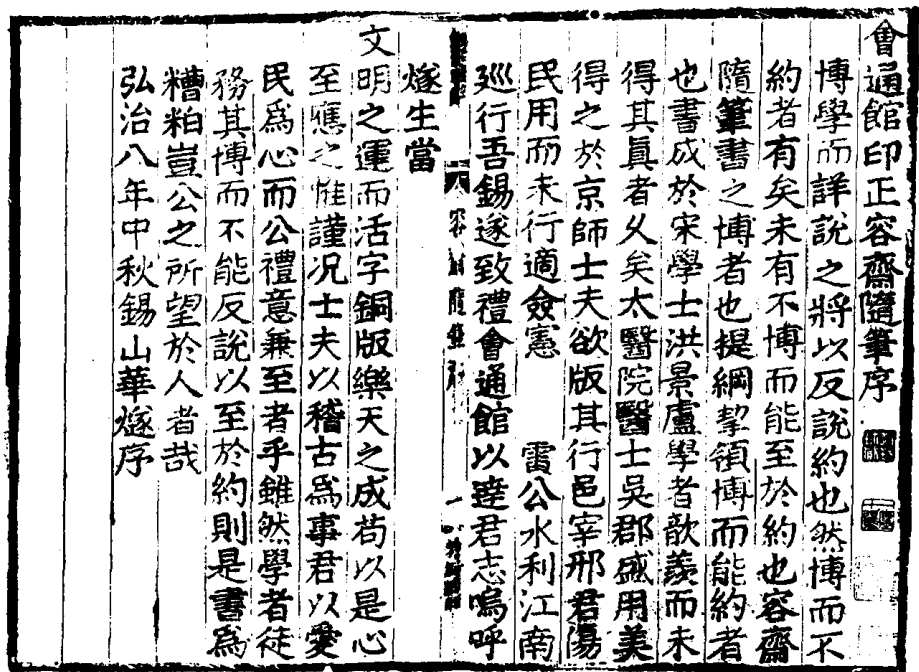 會通館印正容齋隨筆序
博學而詳說之將以反說約也然博而不
約者有矣未有不博而能至於約也容齋
隨筆書之博者也提綱挈領博而能約者
也書成於宋學士洪景盧學者歆羨而未
得其眞者久矣太醫院醫士吳郡盛用美
得之於京師士夫欲版其行邑宰邢君傷
民用而未行適僉憲 雷公水利江南
廵行吾錫遂致禮會通館以達君志嗚呼
燧生當
文明之運而活字銅版樂天之成苟以是心
至應之惟謹况士夫以稽古爲事君以愛
民爲心而公禮意兼至者乎雖然學者徒
務其博而不能反說以至於約則是書爲
糟粕豈公之所望於人者哉
弘治八年中秋錫山華燧序